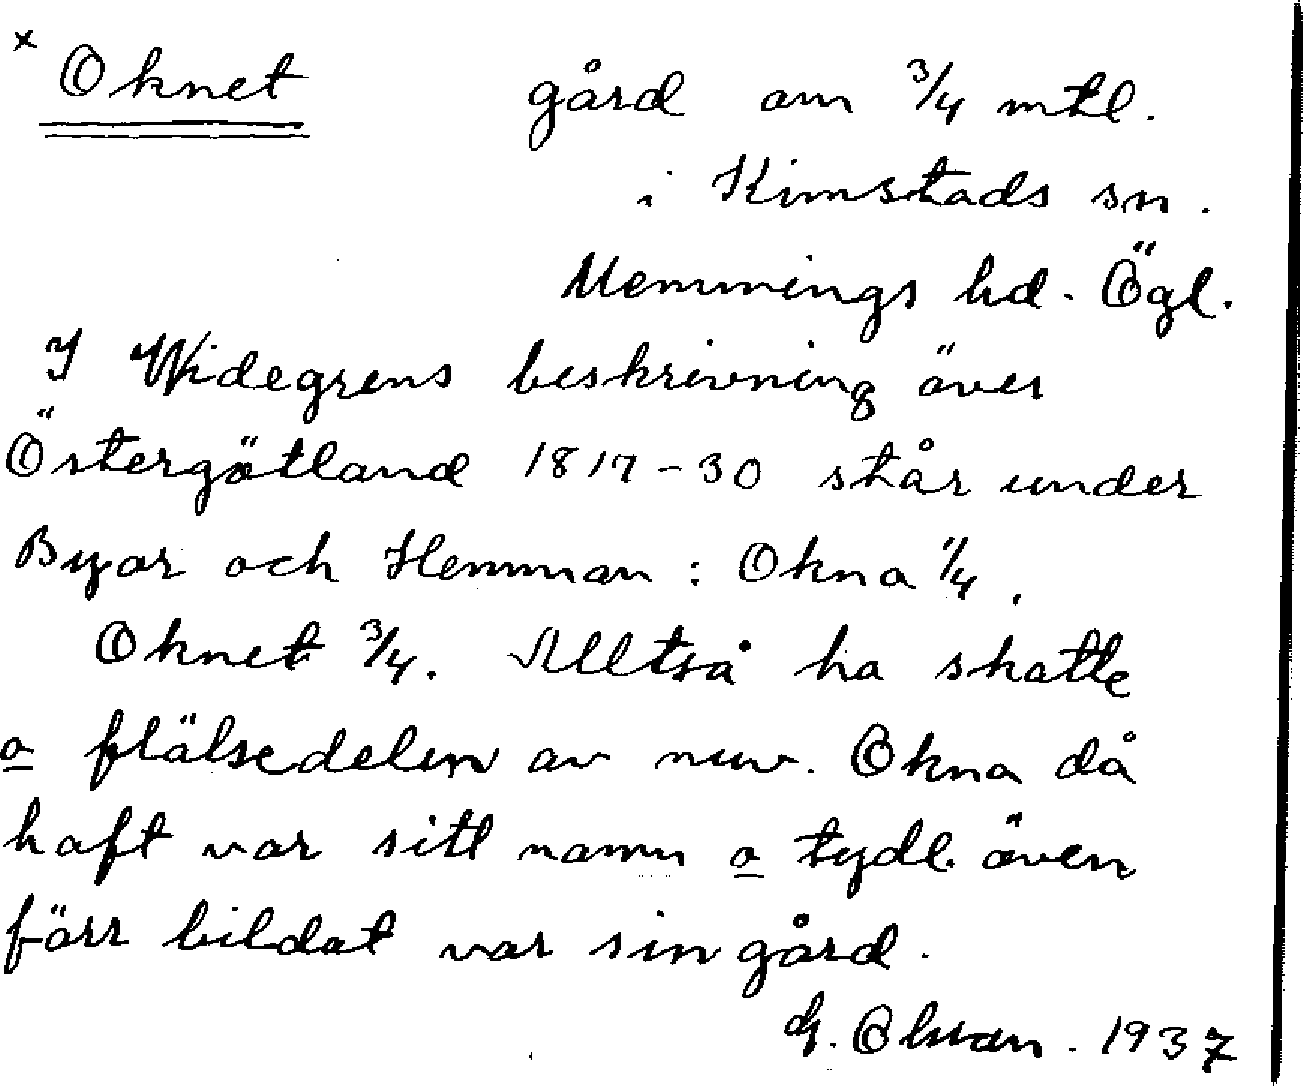 x Oknet gård om 3/4 mtl.
i Kimstads sn.
Memmings hd. Ögl.
I Widegrens beskrivning över
Östergötland 1817-30 står under
Byar och Hemman: Okna 1/4,
Oknet 3/4. Alltså ha skatte
o frälsedelen av nuv. Okna då
haft var sitt namn o tydl. även
förr bildat var sin gård.
G. Olsson. 1937